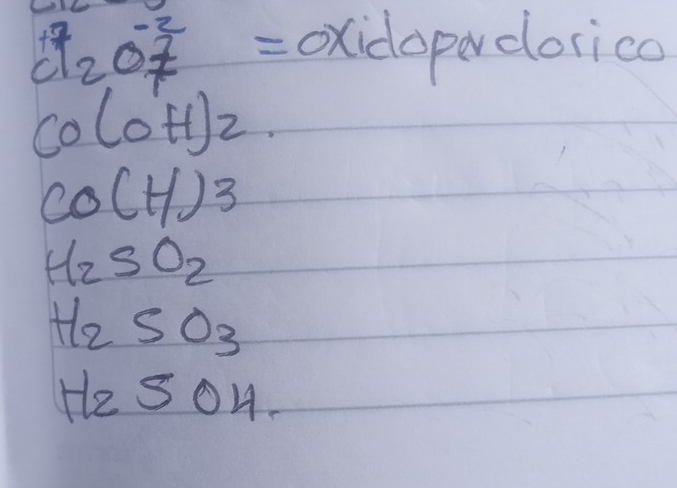 +7 -2
Cl2O7 = oxidoperclorico
Co(OH)2.
Co(H)3
H2SO2
H2SO3
H2SO4.